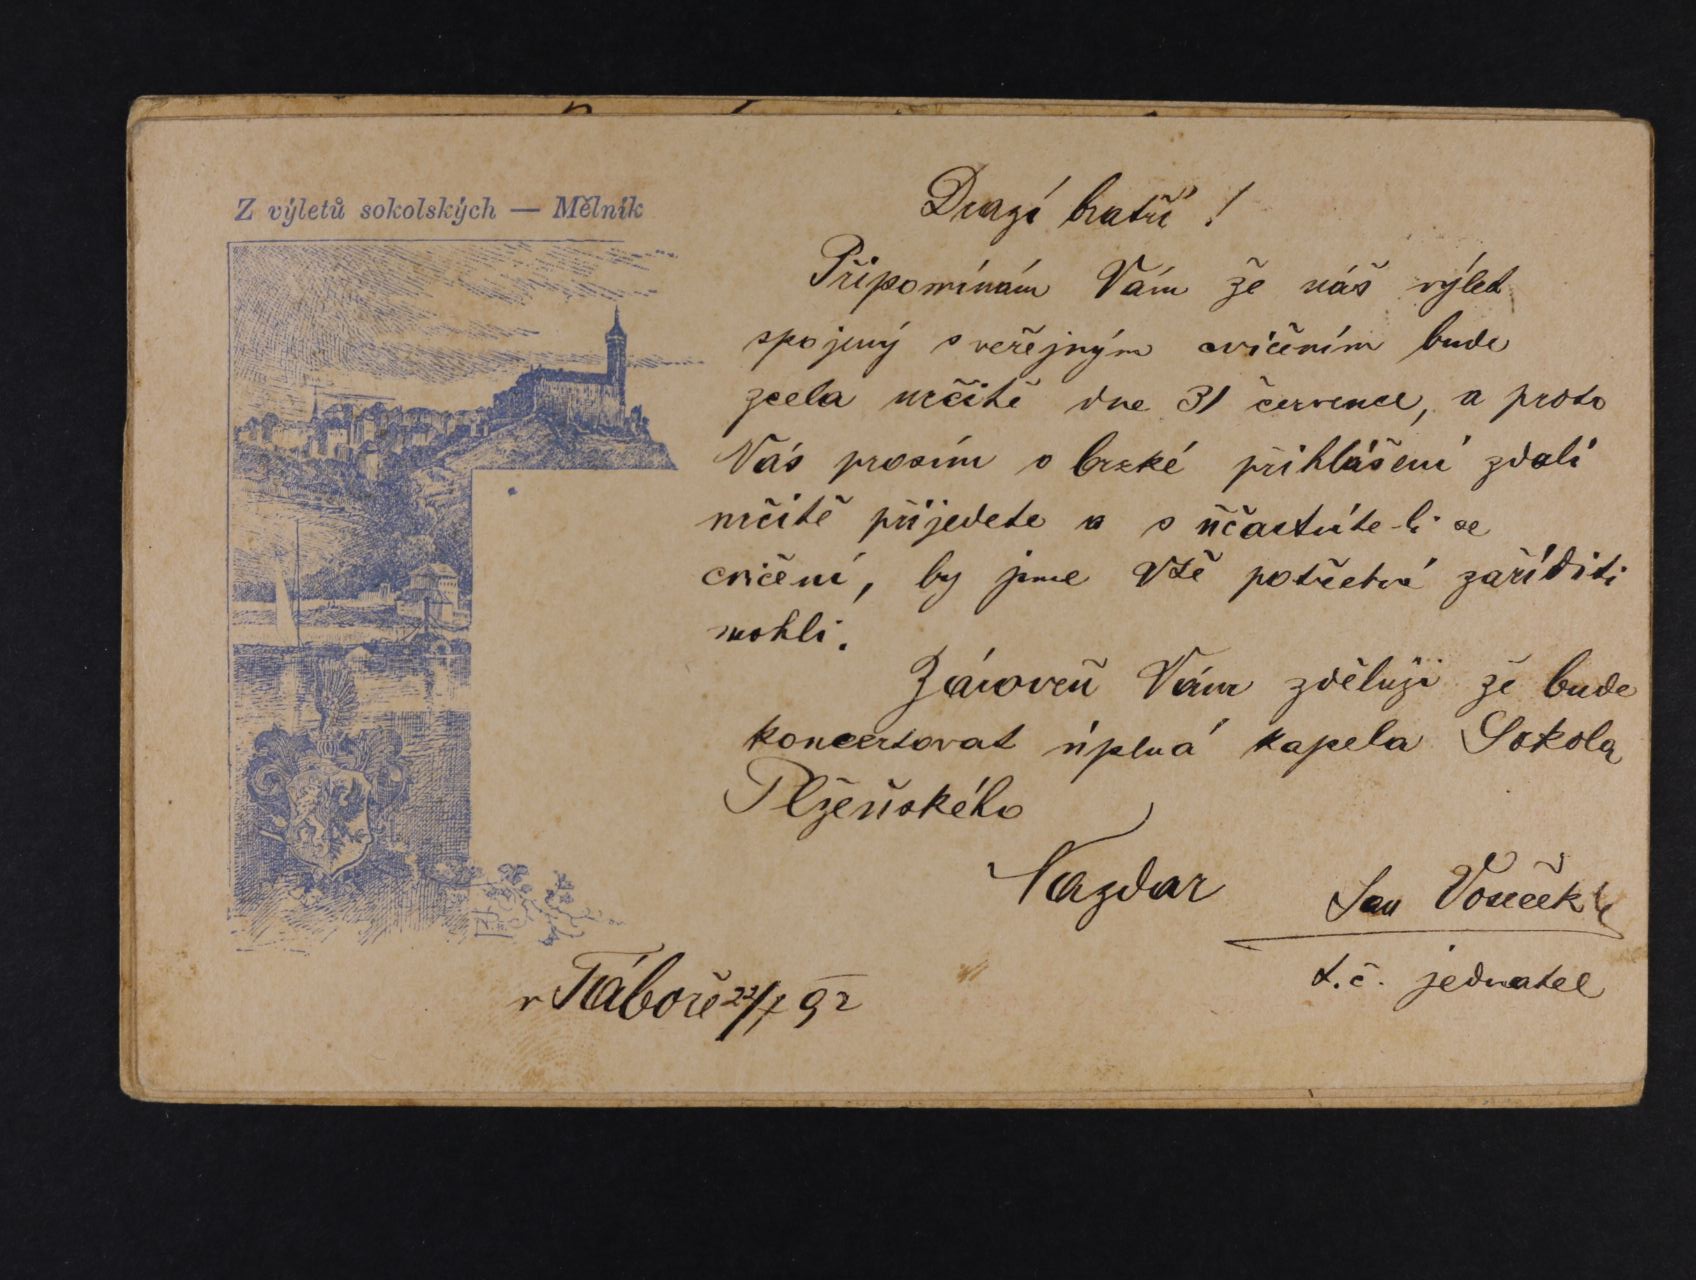 Z výletů sokolských — Mělník
Drazí bratří !
Připomínám Vám že náš výlet
spojený s veřejným cvičením bude
zcela určitě dne 31 července, a proto
Vás prosím o brzké přihlášení zdali
určitě přijedete a súčastníte-li se
cvičení, by jsme Vše potřebné zaříditi
mohli.
Zároveň Vám zděluji že bude
koncertovat úplná kapela Sokola
Plzeňského
Nazdar
Jan
t.č. jednatel
v Táboře 22/7 92